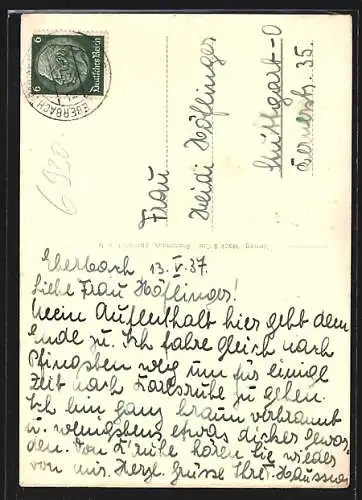 Eberbach 13. V. 37.
Liebe Frau Höflinger!
Mein Aufenthalt hier geht dem
Ende zu. Ich fahre gleich nach
Pfingsten weg um für einige
Zeit nach Karlsruhe zu gehen.
Ich bin ganz braun verbrannt
u. wenigstens etwas dicker gewor-
den. Von K'ruhe hören Sie wieder
von mir. Herzl. Grüsse Ihre
Frau
Heidi Höflinger
Stuttgart-O
35.
6
Deutsches Reich
6
EBERBACH